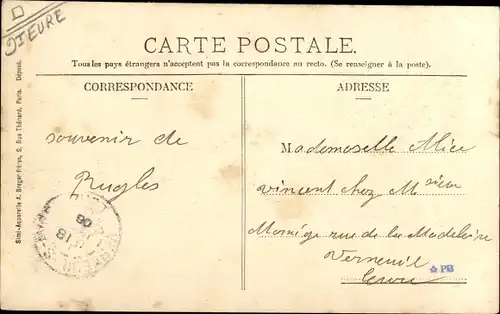 Dt EURE
CARTE POSTALE.
Tous les pays étrangers n'acceptent pas la correspondance au recto. (Se renseigner à la poste).
CORRESPONDANCE
ADRESSE
souvenir de
Rugles
Mademoselle Alice
vincent chez Msieu
rue de la Madeleine
Verneuil
Eure
Simi-Aquarelle A. Breger Frères, 9, Rue Thénard, Paris. Déposé.
PB